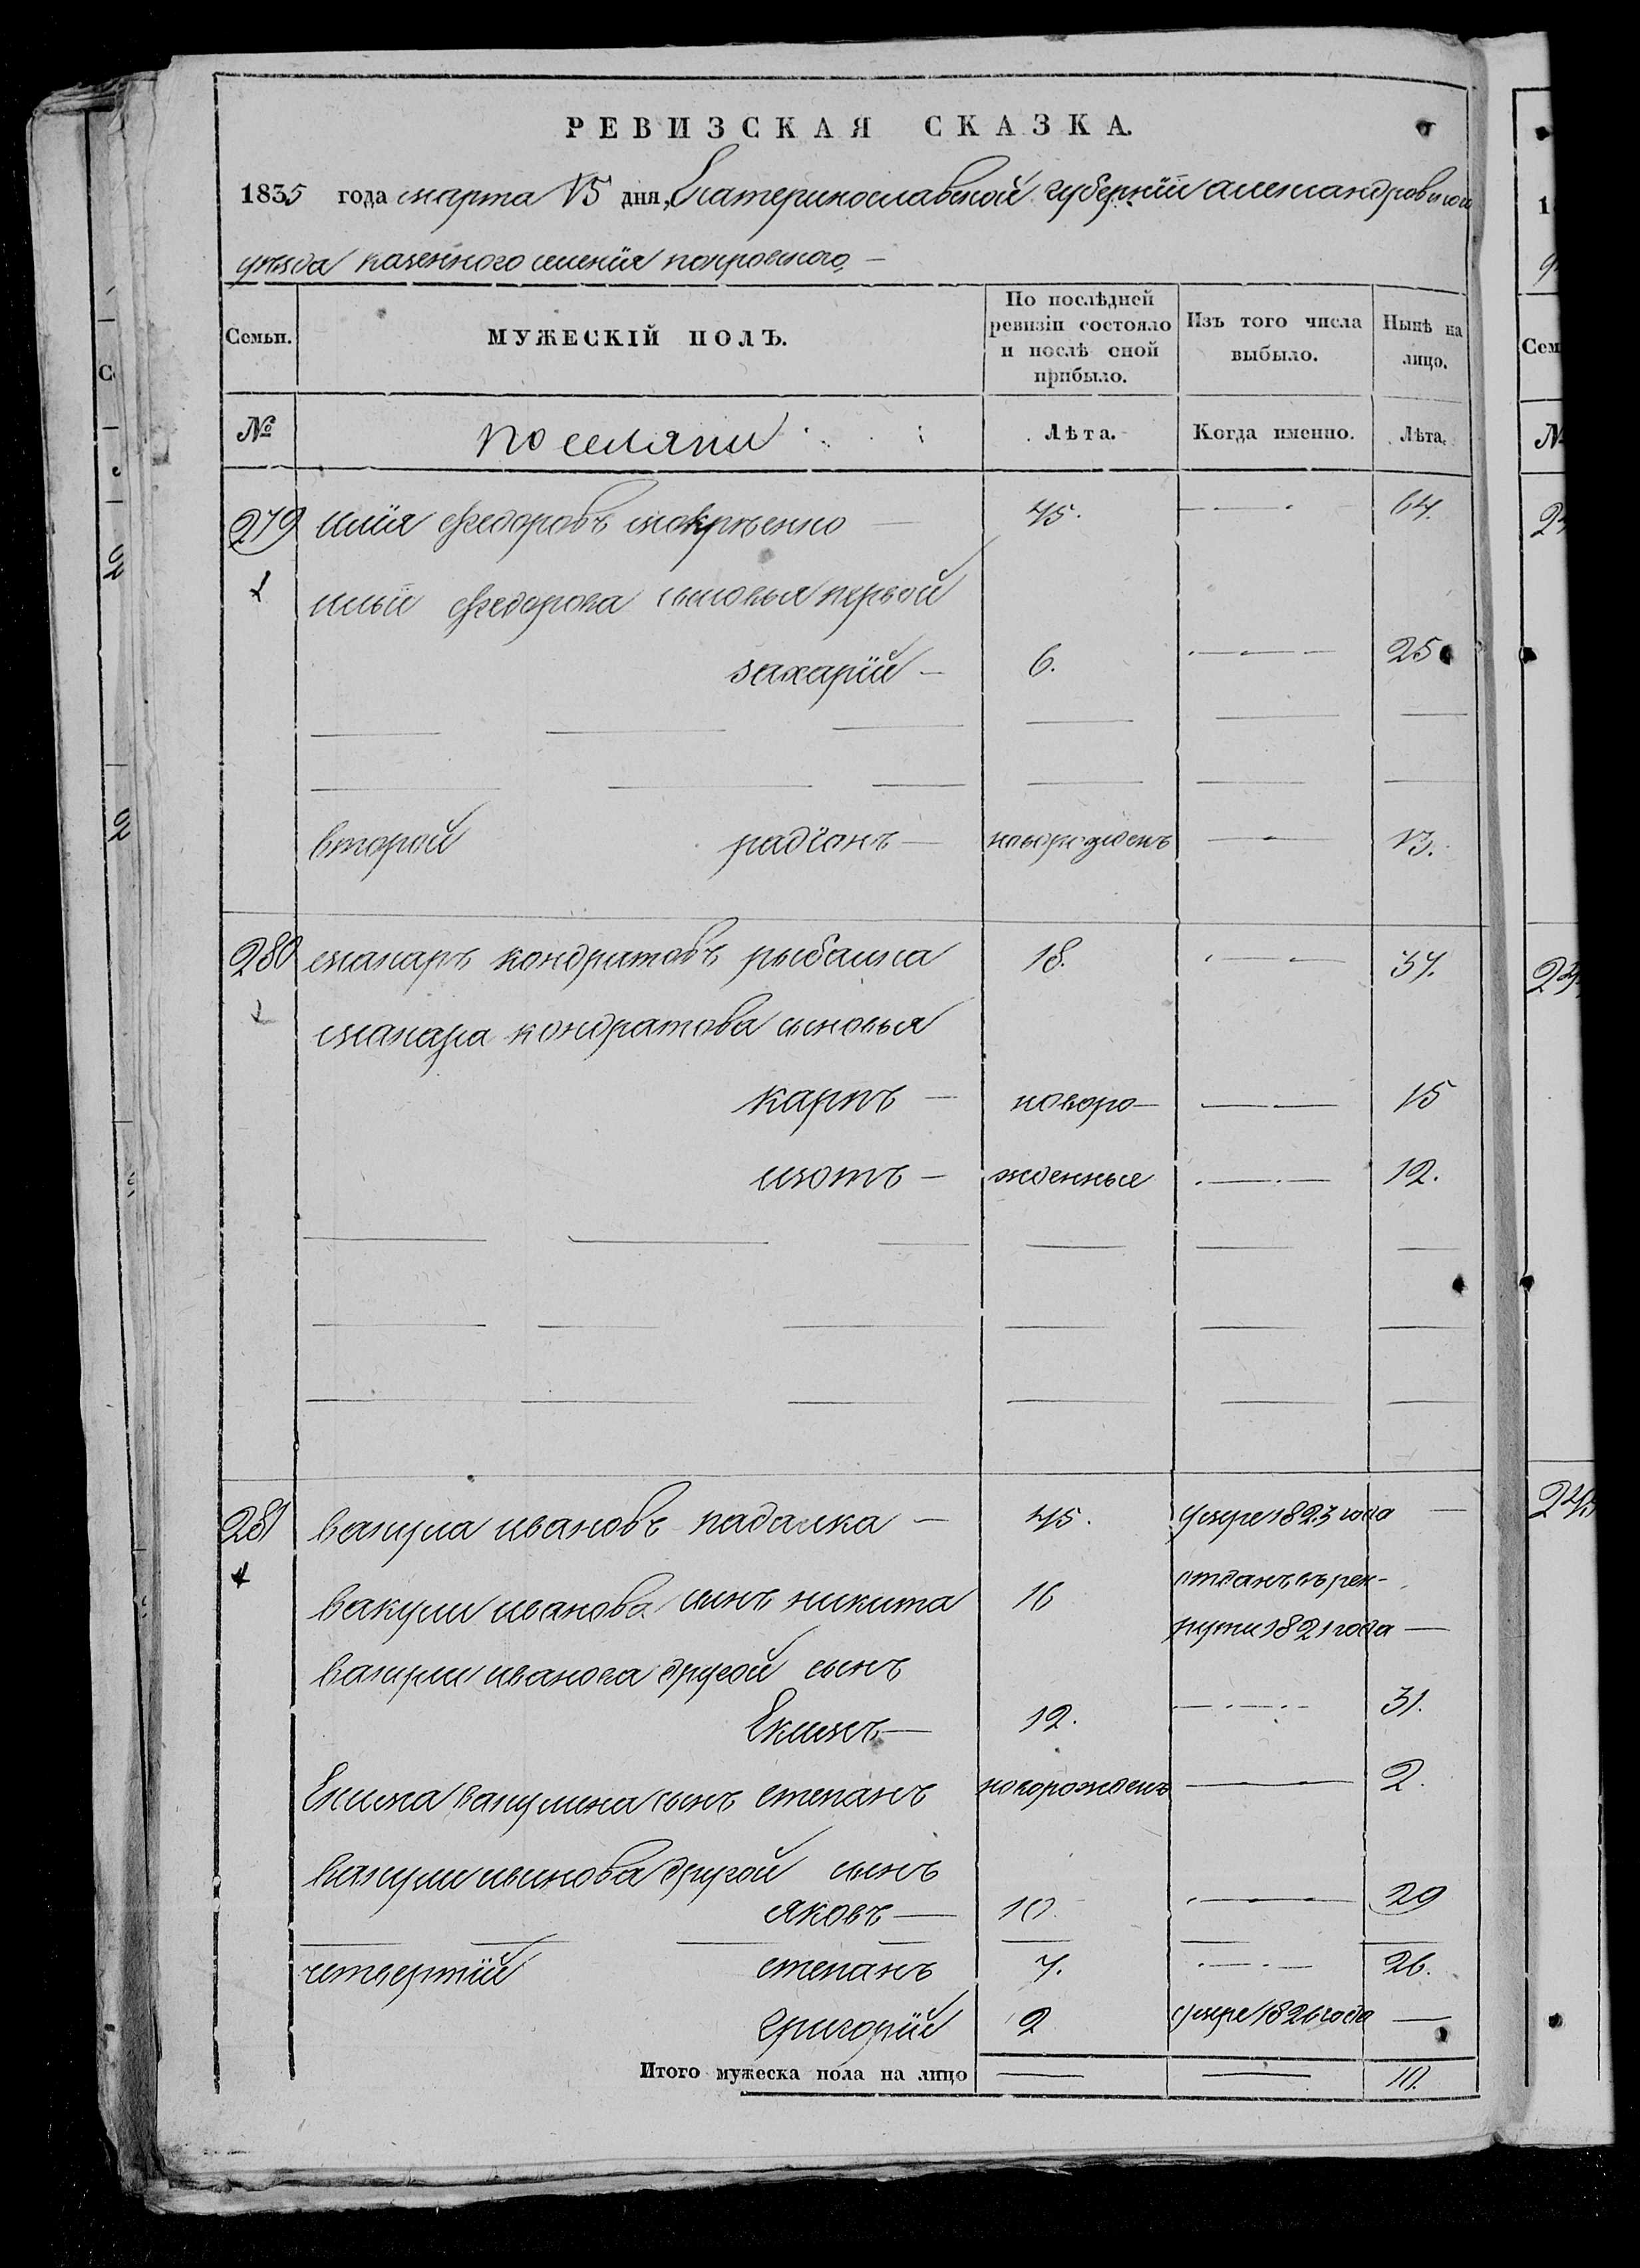 РЕВИЗСКАЯ СКАЗКА.
1835 года марта 15 дня, Екатеринославской губернïи александровского
уѣзда казенного селенïя покровского
Семьи.
МУЖЕСКІЙ ПОЛЪ.
По послѣдней ревизіи состояло и послѣ оной прибыло.
Изъ того числа выбыло.
Нынѣ на лицо.
№
поселяни
Лѣта.
Когда именно.
Лѣта.
279 илïя федоровъ 45. 64.
ильи федорова сыновья первой
захарïй 6. 25
второй радïонъ новорожденъ 13.
280 макаръ кондратовъ рыбалка 18. 37.
макара кондратова сыновья
карпъ новоро- 15
изотъ жденныя 12.
281 вакула ивановъ падалка 45. умре 1823 года
вакули иванова сынъ никита 16 отданъ въ рек-
рути 1821 года
вакули иванова другой сынъ
Екимъ 12. 31.
Екима вакулина сынъ степанъ новорожденъ 2.
вакули иванова другой сынъ
яковъ 10. 29
четвертïй степанъ 7. 26.
григорïй 2 умре 1826 года
Итого мужеска пола на лицо 10.